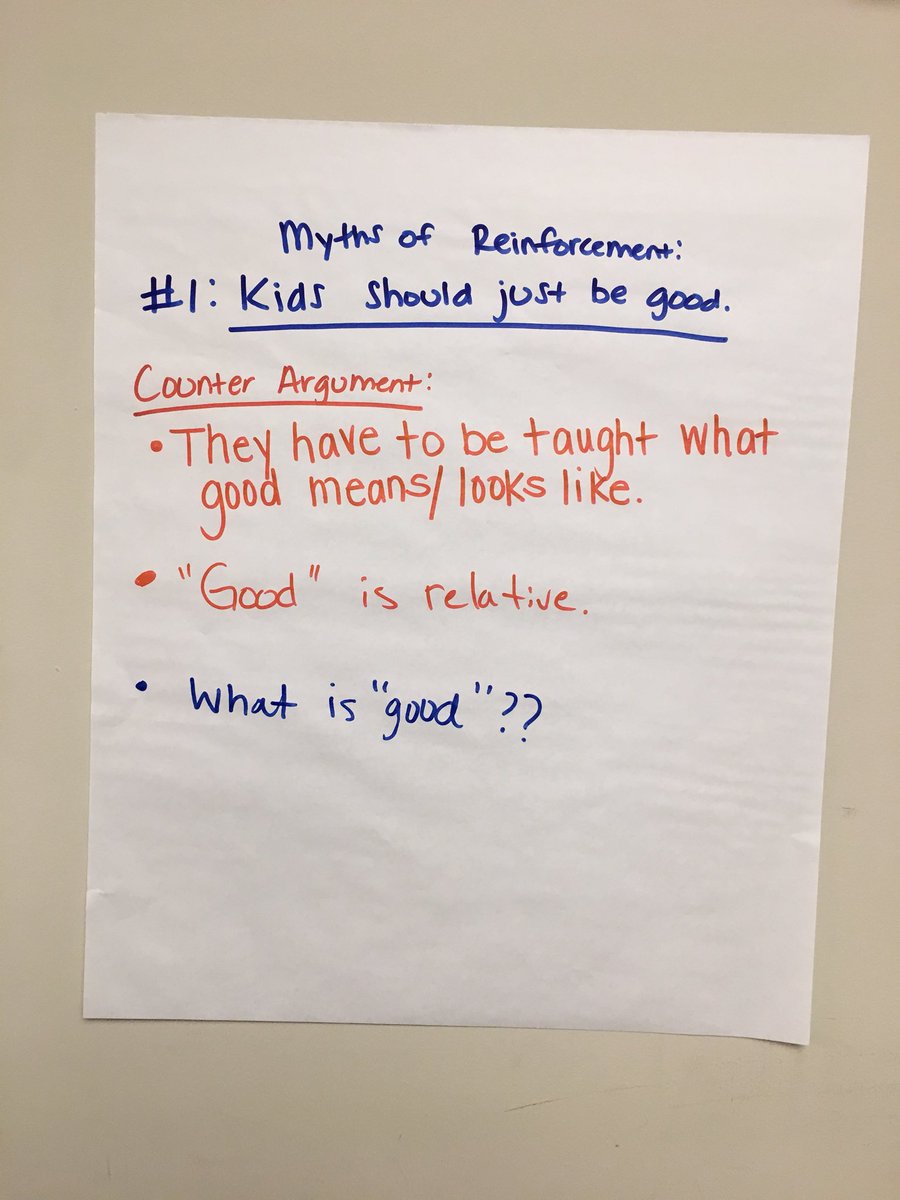 Myths of Reinforcement:
#1: Kids should just be good.
Counter Argument:
• They have to be taught what
good means/looks like.
• "Good" is relative.
• What is "good"??